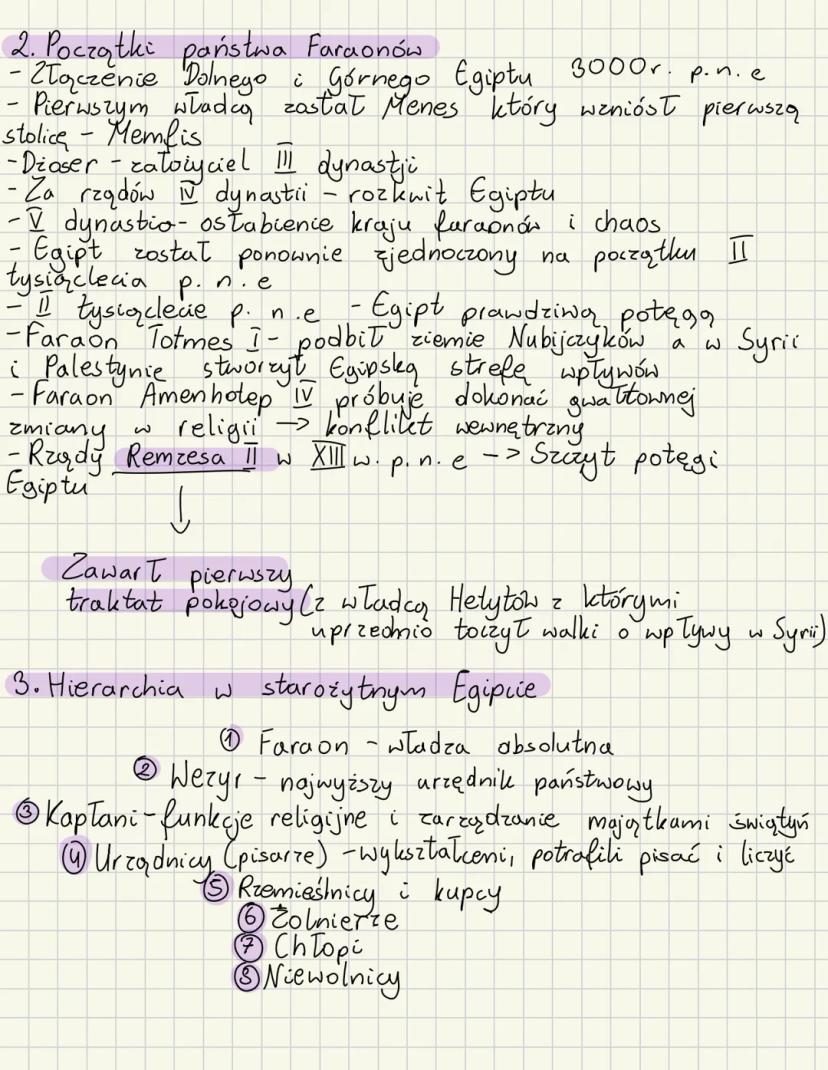 2. Początki państwa Faraonów
- Złączenie Dolnego i Górnego Egiptu 3000r. p.n.e
- Pierwszym władcą został Menes który wzniósł pierwszą
stolicę - Memfis
- Dżoser - założyciel III dynastji
- Za rządów IV dynastii - rozkwit Egiptu
- V dynastia - osłabienie kraju faraonów i chaos
- Egipt został ponownie zjednoczony na początku II
tysiąclecia p.n.e
- II tysiąclecie p.n.e - Egipt prawdziwą potęgą
- Faraon Totmes I - podbił ziemie Nubijczyków a w Syrii
i Palestynie stworzył Egipską strefę wpływów
- Faraon Amenhotep IV próbuje dokonać gwałtownej
zmiany w religii → konflikt wewnętrzny
- Rządy Remzesa II w XIII w. p.n.e -> Szczyt potęgi
Egiptu
↓
Zawarł pierwszy
traktat pokojowy (z władcą Hetytów z którymi
uprzednio toczył walki o wpływy w Syrii)
3. Hierarchia w starożytnym Egipcie
① Faraon - władza absolutna
② Wezyr - najwyższy urzędnik państwowy
③ Kapłani - funkcje religijne i zarządzanie majątkami świątyń
④ Urzędnicy (pisarze) - wykształceni, potrafili pisać i liczyć
⑤ Rzemieślnicy i kupcy
⑥ Żołnierze
⑦ Chłopi
⑧ Niewolnicy